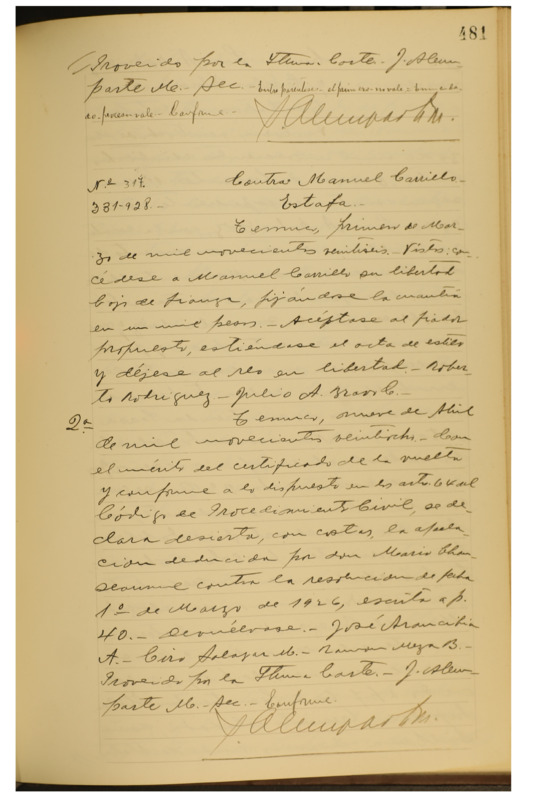 481
Proveido por la Iltma. Corte. J. Alem-
parte M. Sec. - Entre paréntesis - el primero no vale =
no vale - Conforme. -
J. Alemparte M.
N.º 317. Contra Manuel Carrillo -
381-928. - Estafa. -
Temuco, primero de Mar-
zo de mil novecientos veintiseis. Vistos: con-
cédese a Manuel Carrillo su libertad
bajo de fianza, fijándose la cuantía
en un mil pesos. - Acéptase al fiador
propuesto, estiéndase el acta de estilo
y déjese al reo en libertad. - Rober-
to Rodriguez - Julio A. Bravo C. -
2ª Temuco, nueve de Abril
de mil novecientos veintiocho. - Con
el mérito del certificado de la vuelta
y conforme a lo dispuesto en los arts. 64 al
Código de Procedimiento Civil, se de-
clara desierta, con costas, la apela-
cion deducida por don Mario
contra la resolucion de fecha
1º de Marzo de 1926, escrita a f.
40. - Devuélvase. - José Arancibia
A. - Ciro Salazar M. - Ramon Meza B. -
Proveido por la Iltma Corte. - J. Alem-
parte M. - Sec. - Conforme.
J. Alemparte M.